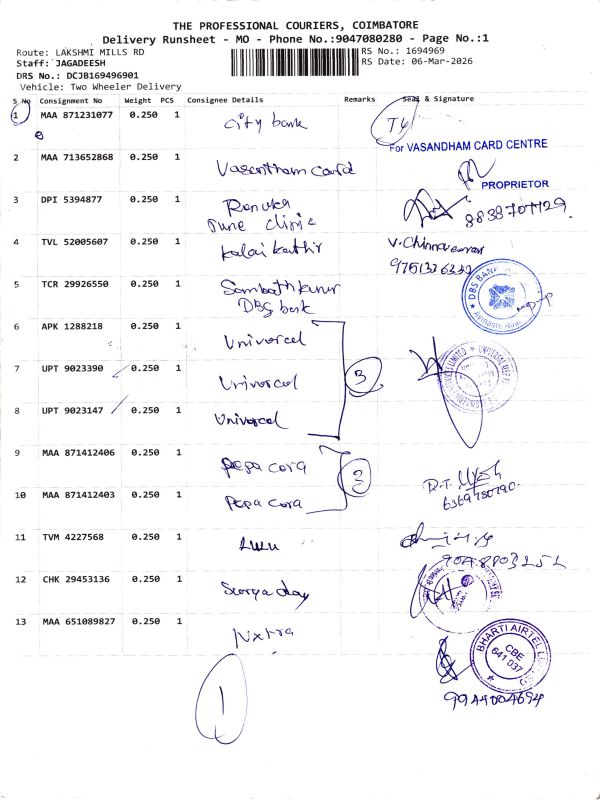 THE PROFESSIONAL COURIERS, COIMBATORE
Delivery Runsheet - MO - Phone No.:9047080280 - Page No.:1
Route: LAKSHMI MILLS RD
RS No.: 1694969
Staff: JAGADEESH
RS Date: 06-Mar-2026
DRS No.: DCJB169496901
Vehicle: Two Wheeler Delivery
S No Consignment No Weight PCS Consignee Details Remarks Seal & Signature
1 MAA 871231077 0.250 1 city bank
For VASANDHAM CARD CENTRE
2 MAA 713652868 0.250 1 Vasantham card
PROPRIETOR
3 DPI 5394877 0.250 1 Renuka
clinic
4 TVL 52005607 0.250 1 kalai kathir
5 TCR 29926550 0.250 1
DBS bank
DBS BANK
Avinashi Road
6 APK 1288218 0.250 1 Univercel
7 UPT 9023390 0.250 1 Univercel
3
8 UPT 9023147 0.250 1 Univercel
9 MAA 871412406 0.250 1 pepa cora
10 MAA 871412403 0.250 1 pepa cora
11 TVM 4227568 0.250 1 Lulu
12 CHK 29453136 0.250 1 Surya day
13 MAA 651089827 0.250 1 Nxtra
BHARTI AIRTEL
CBE
641 037
9944004694
1